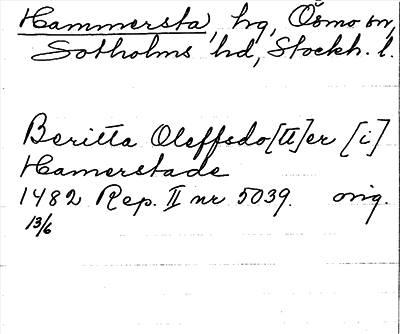 Hammersta, hg, Ösmo sn,
Sotholms hd, Stockh. l.
Beritta Oleffsdo[tt]er [i]
Hamerstade
1482 Rep. II nr 5039. orig.
13/6